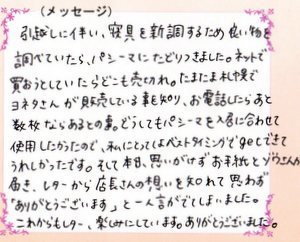 (メッセージ)
引越しに伴い、寝具を新調するため良い物を
調べていたら、パシーマにたどりつきました。ネットで
買おうとしていたらどこも売切れ。たまたま札幌で
ヨネタさんが販売している事を知り、お電話したらあと
数枚ならあるとの事。どうしてもパシーマを入居に合わせて
使用したかったので、私にとってはベストタイミングでgetできて
うれしかったです。そして本日、思いがけずお手紙とゾウさんが
届き、レターから店長さんの想いを知れて思わず
「ありがとうございます」と一人言がでてしまいました。
これからもレター、楽しみにしています。ありがとうございました。